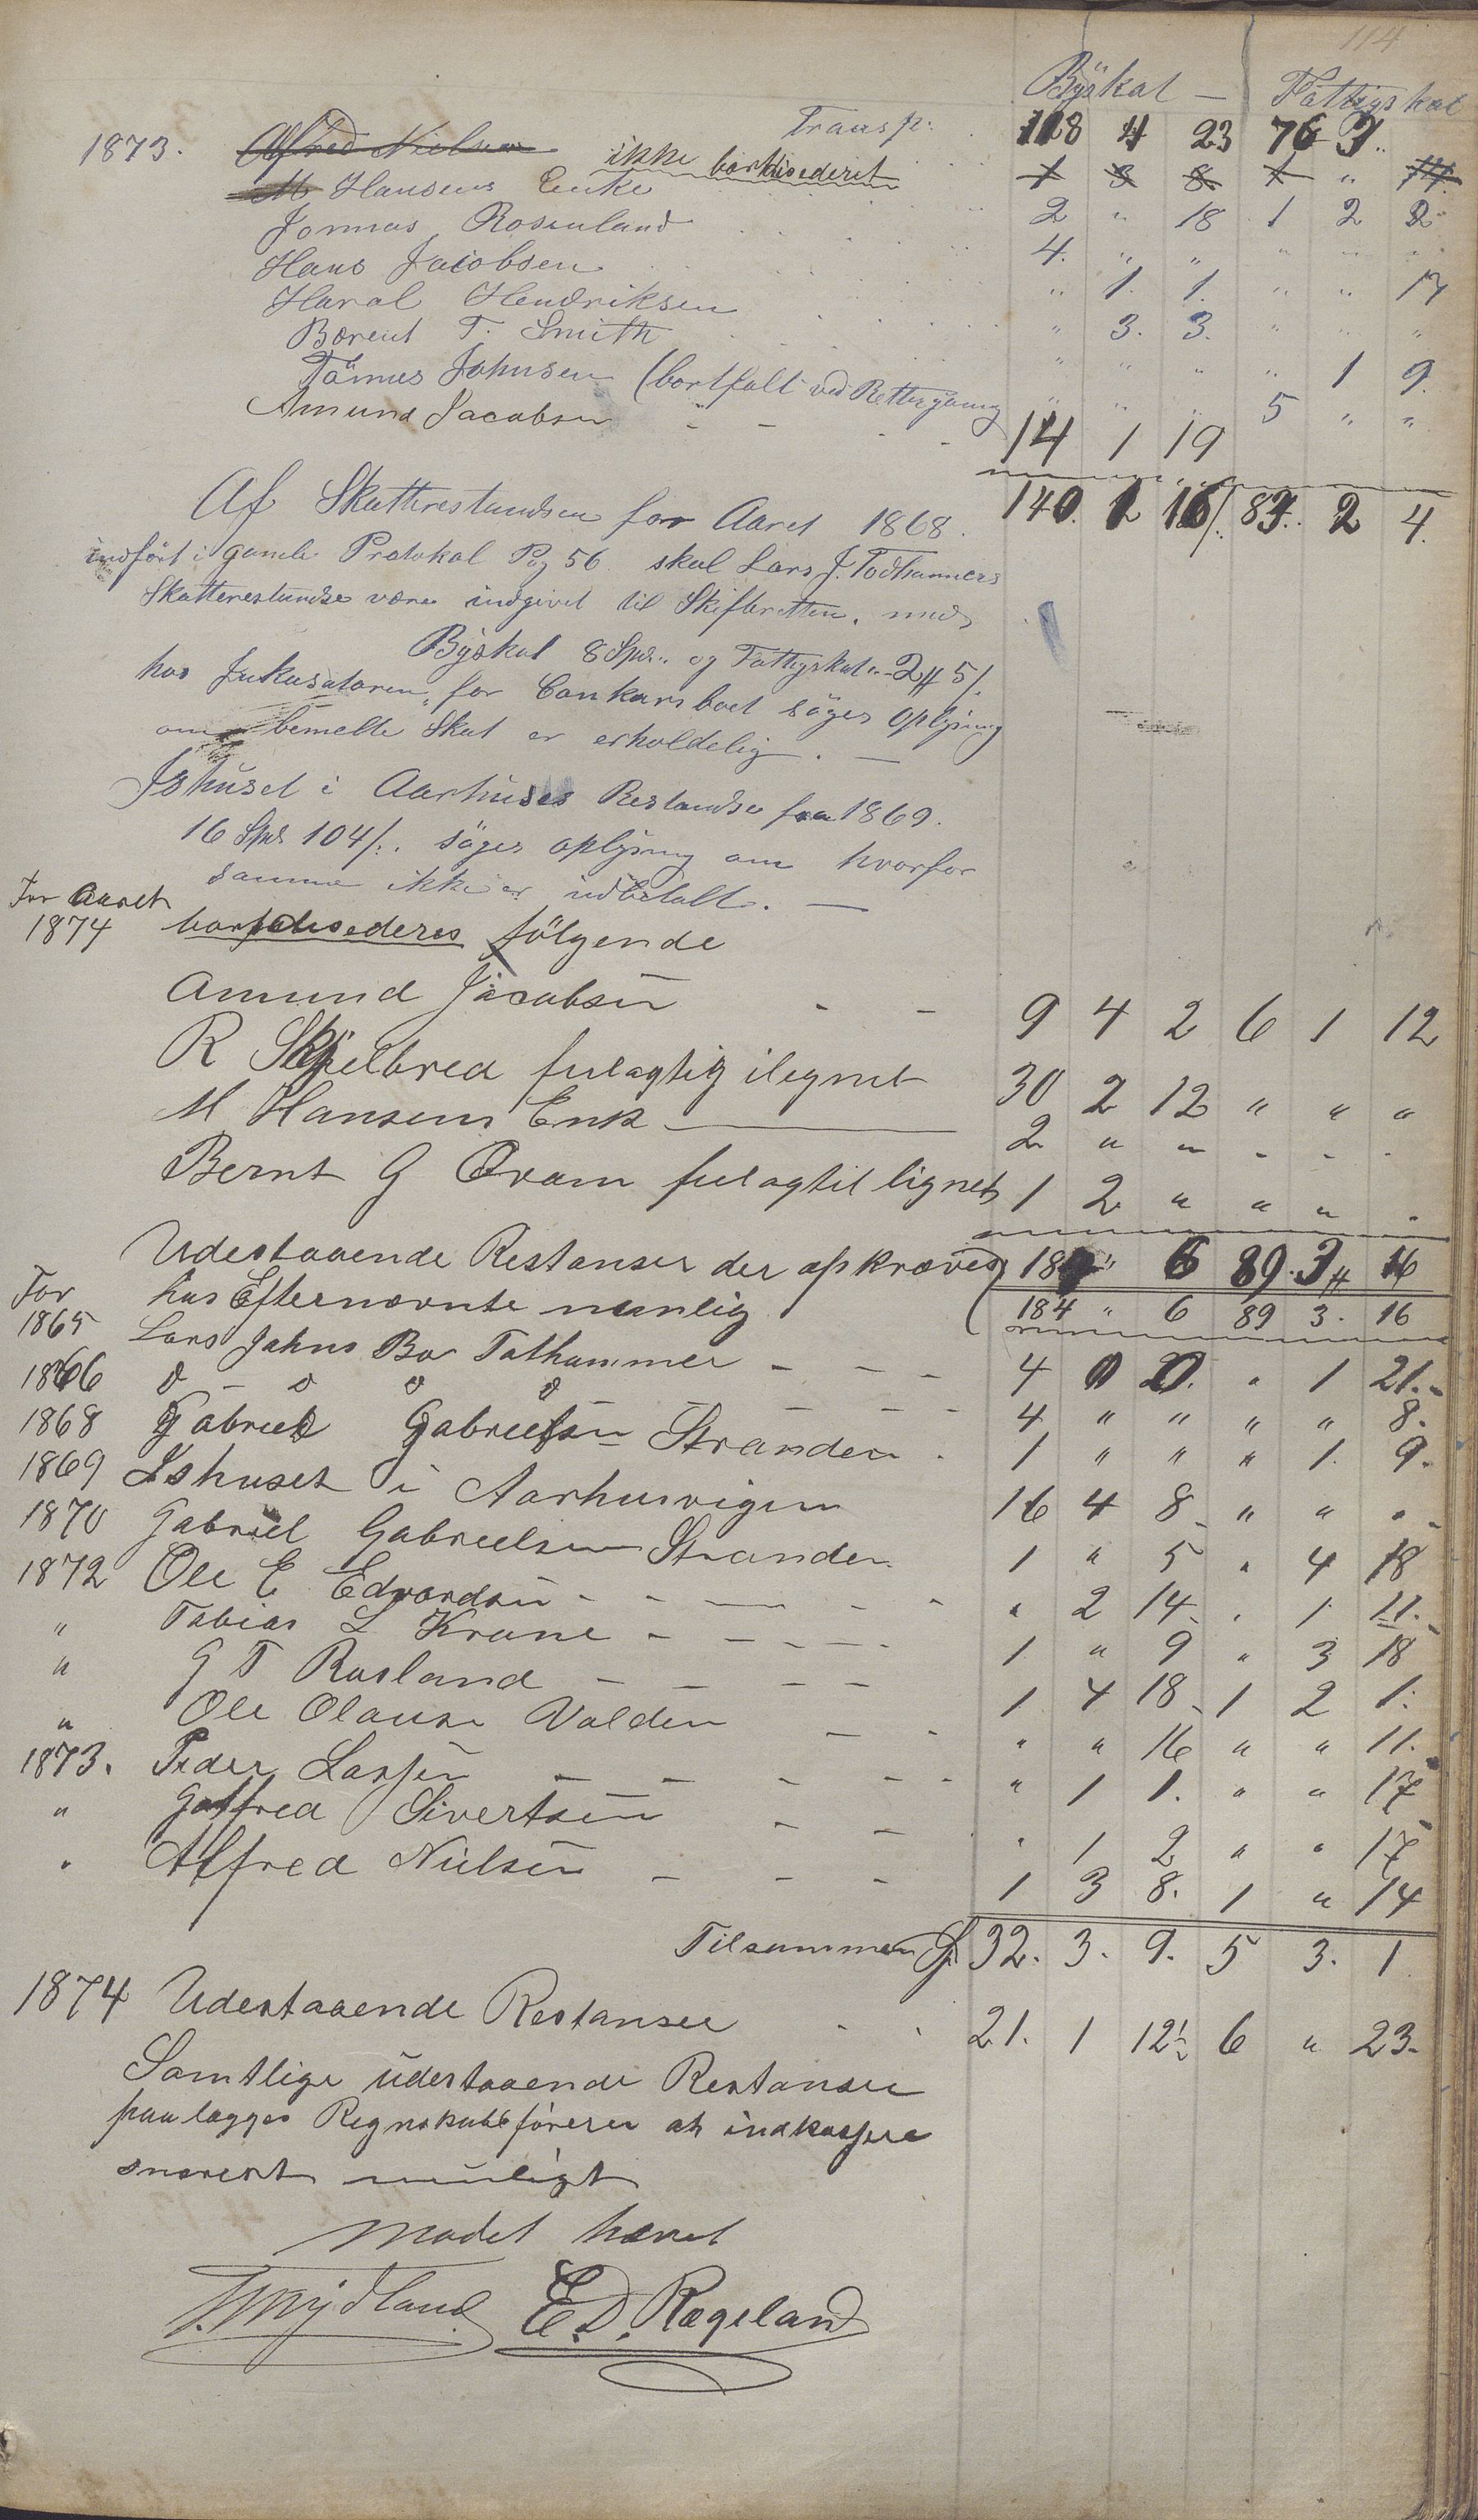 114
Byskat — Fattigskat
Transp: 118 4 23 76 3
1873. Alfred Nielsen ikke bortdisederet 1 3 8 1 " 14
M Hansens Enke 2 " 18 1 2 2
Jonnas Rosenland 4. " " " " "
Hans Jacobsen " 1. 1. " " 17
Haral Hendriksen " 3. 3. " " "
Berent T. Smith " " " " 1 9.
Tönnes Johnsen (bortfalt ved Rettergang " " " 5 " "
Amund Jacobsen - - - - 14 1 19
140. 1 16/. 83. 2 4.
Af Skatterestandsen for Aaret 1868.
indført i gamle Protokol Pag 56. skal Lars J. Todhammers
Skatterestandse være indgivet til Skifteretten, med
Byskat 8 Spd. og Fattigskat 2 # 5/.
hos Inkasatoren, for Conkursboet søges oplysning
om bemelte Skat er erholdelig. —
Ishuset i Aarhuses Restandse fra 1869.
16 Spd 104/. søges oplysning om hvorfor
samme ikke er indbetalt. —
For Aaret
1874 bortdisederes følgende
Amund Jacobsen - - 9 4 2 6 1 12
R Skjelbred fulagtig ilegnet 30 2 12 " " "
M Hansens Enk — 2 " " - - -
Bernt G Qvam fulagtil lignet 1 2 " " " .
Udestaaende Restanser der afkræves 18 " 6 89. 3 # 16
For hos Efternævnte nemlig 184 " 6 89 3. 16
1865 Lars Johns Bo Tathammer - - - 4 0 20. " 1 21.-
1866 d - d d d - - - - 4 " " " " 8.
1868 Gabriel Gabrielsen Stranden . 1 " " " 1. 9.
1869 Ishuset i Aarhusvigen 16 4 8 - " " . -
1870 Gabriel Gabrielsen Stranden 1 " 5 " 4 18
1872 Ole E Edvardsen - - — - - " 2 14 . 1 11.-
" Tobias L Krane - - - - - 1 " 9 " 3 18
" G T Rosland - - - - 1 4 18 - 1 2 1.
" Ole Olausen Valden - - " " 16 " " 11.
1873. Peder Larsen - - - - - " 1 1. " " 17
" Gotfred Sivertsen - - " 1 2 " " 17
" Alfred Nielsen - - - 1 3 8. 1 " 14
Tilsammen 32. 3. 9. 5 3. 1
1874 Udestaaende Restanser . . 21. 1 12½ 6 " 23.
Samtlige udestaaende Restanser
paalægges Regnskabsfører at indkassere
snarest muligt
Mødet hævet
E. D. Rægeland